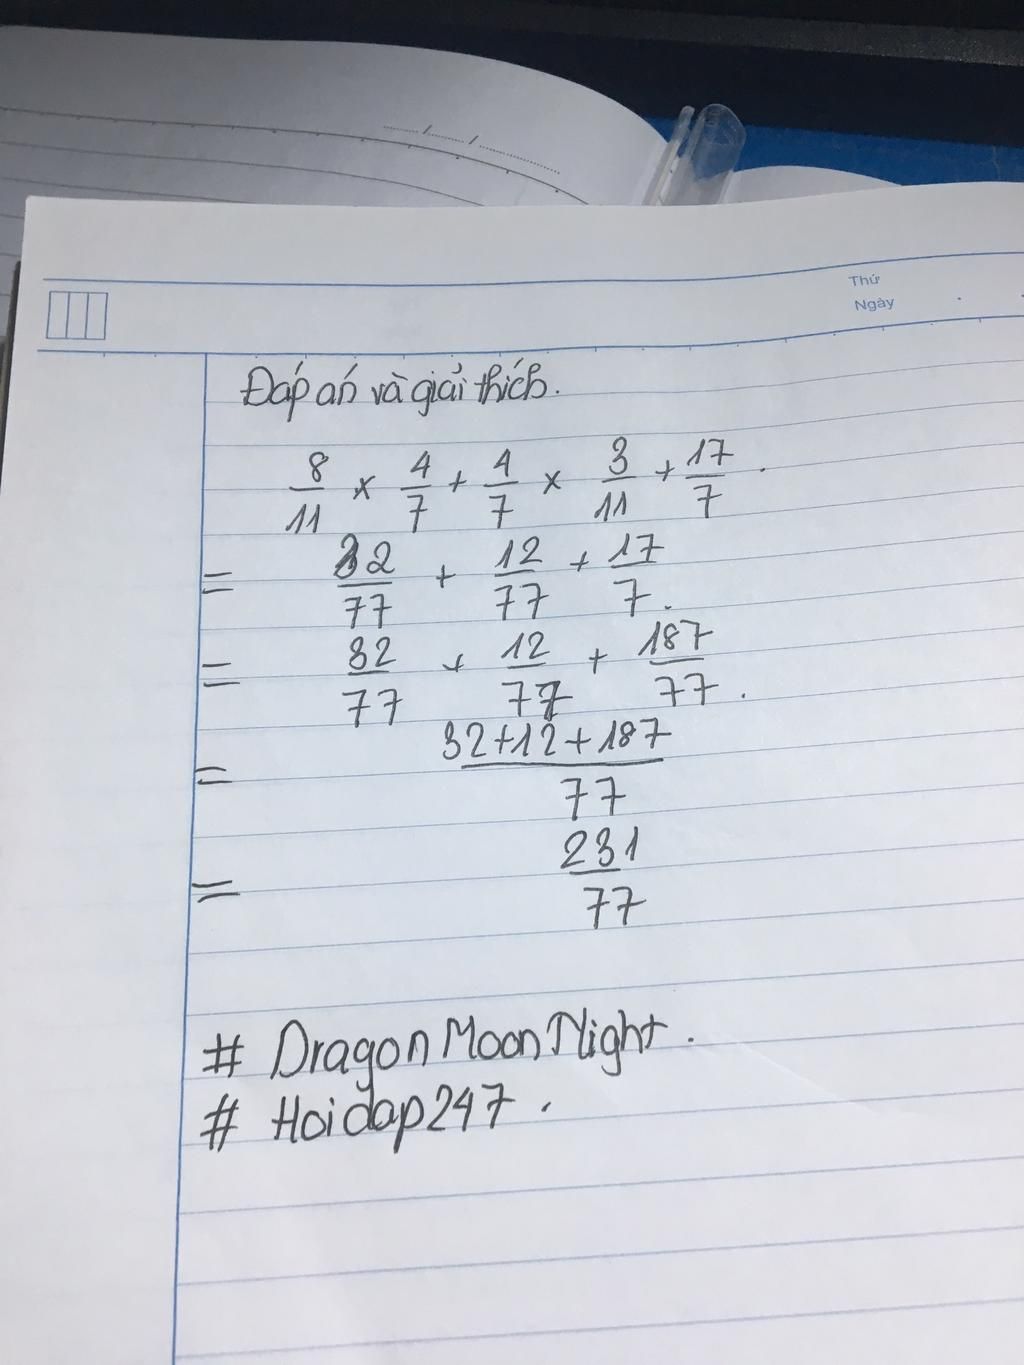 Thứ
Ngày
Đáp án và giải thích.
8/11 × 4/7 + 4/7 × 3/11 + 17/7.
= 32/77 + 12/77 + 17/7.
= 32/77 + 12/77 + 187/77.
= 32+12+187/77
= 231/77
# DragonMoonNight.
# Hoidap247.